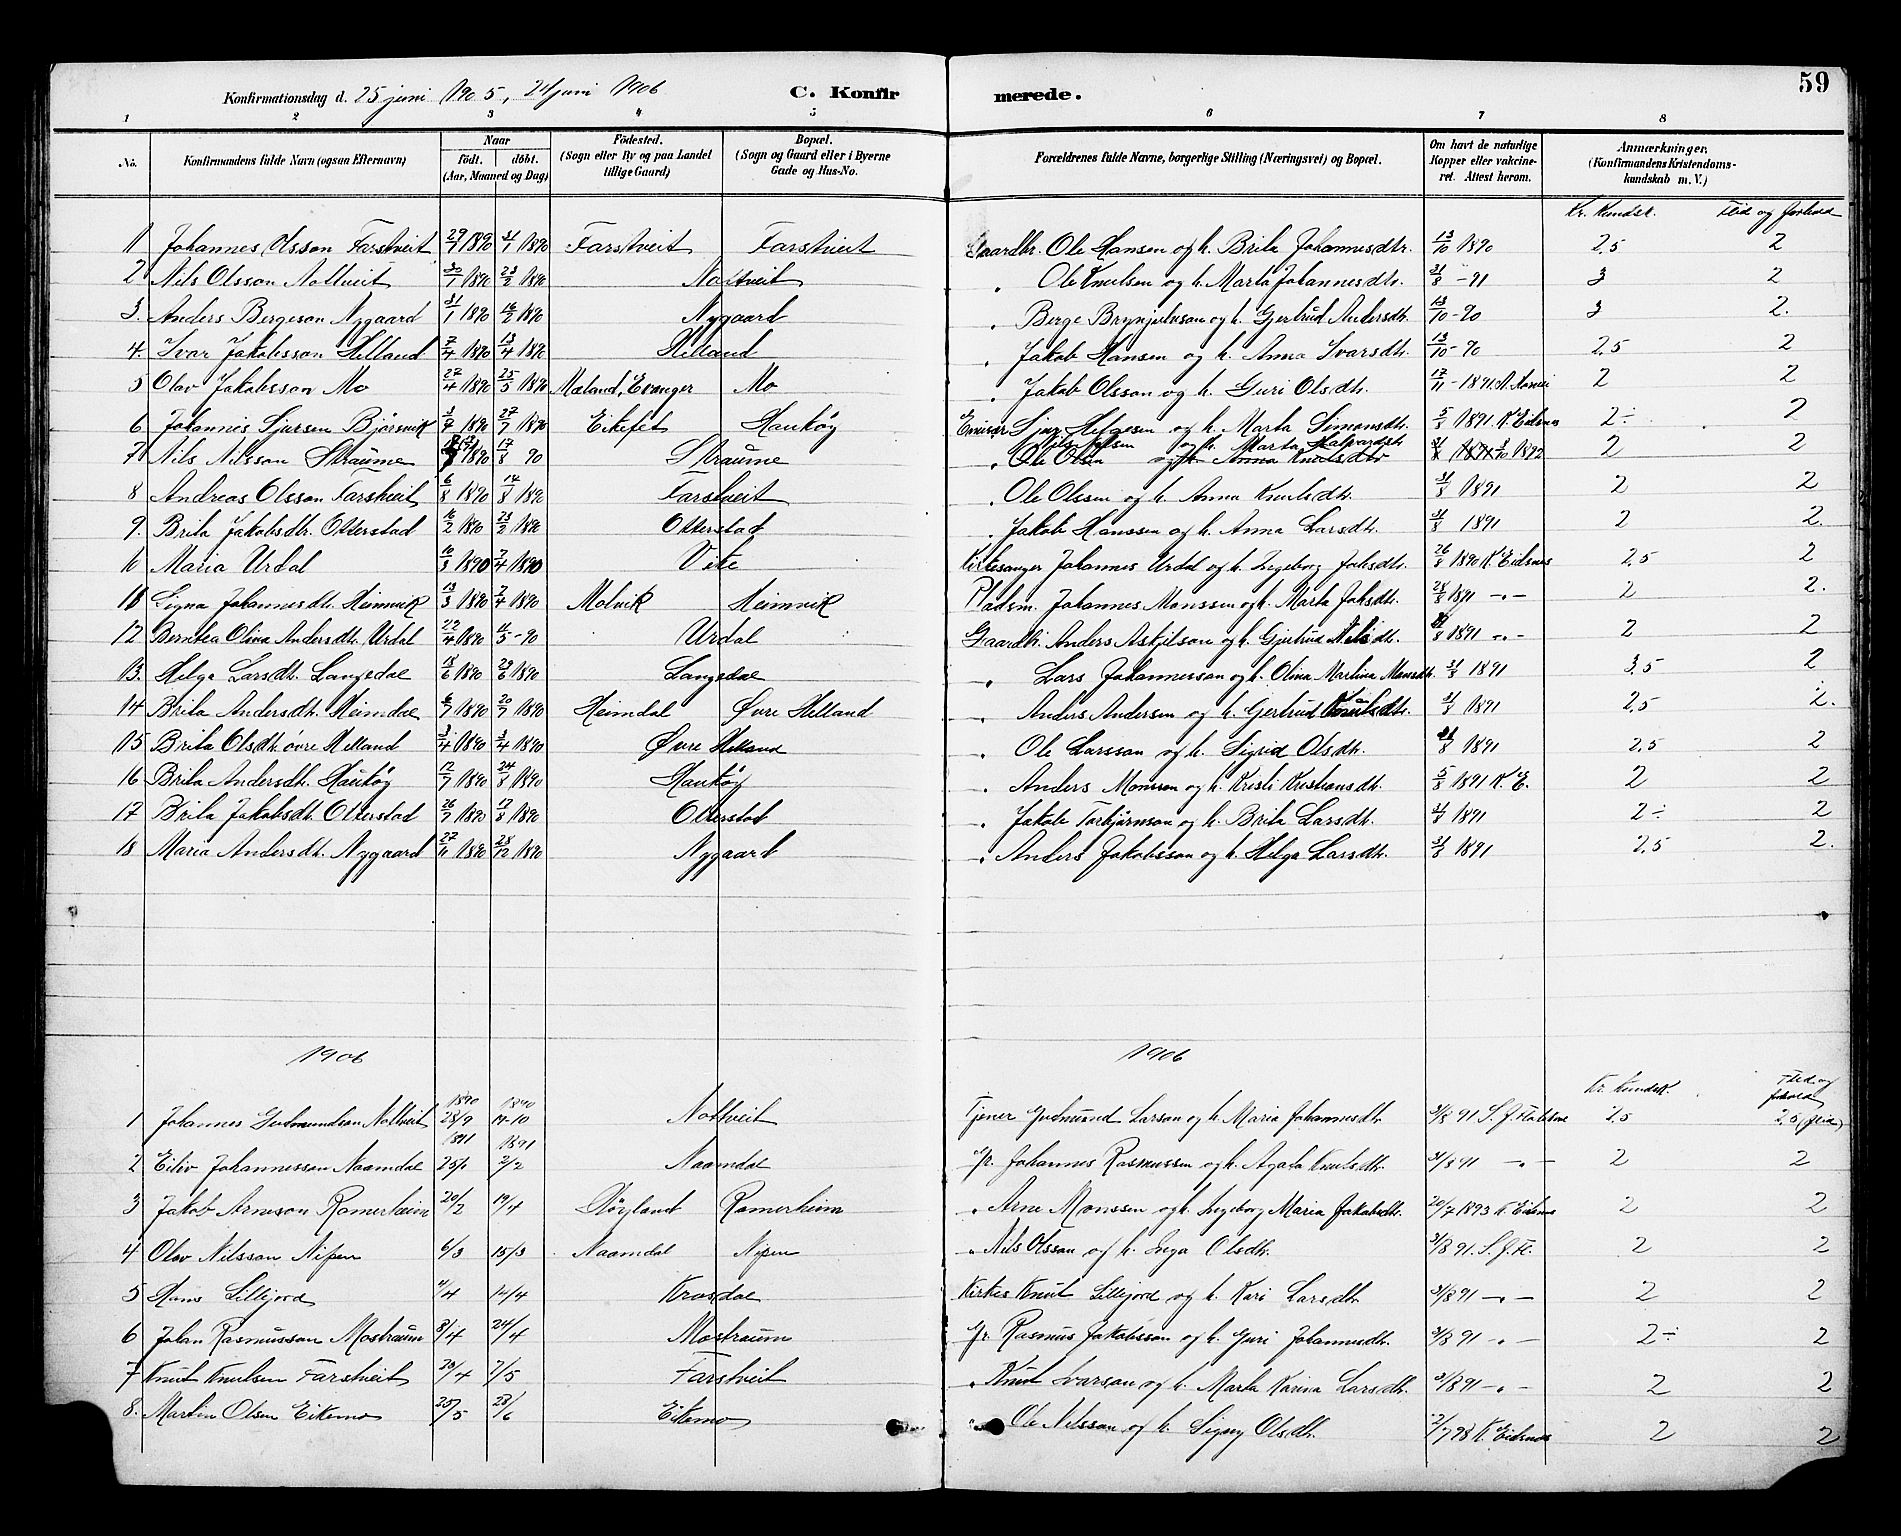 59
Konfirmationsdag d. 25 juni 1905, 24 juni 1906 C. Konfirmerede.
1 2 3 4 5 6 7 8
No. Konfirmandens fulde Navn (ogsaa Efternavn) Naar födt. döbt. (Aar, Maaned og Dag) Födested. (Sogn eller By og paa Landet tillige Gaard) Bopæl. (Sogn og Gaard eller i Byerne Gade og Hus-No. Forældrenes fulde Navne, borgerlige Stilling (Næringsvei) og Bopæl. Om havt de naturlige Kopper eller vakcineret. Attest herom. Anmærkninger, (Konfirmandens Kristendomskundskab m. V.)
Kr. Kundsk. Flid og forhold
1 Johannes Olsson Farstveit 29/1 1890 31/1 1890 Farstveit Farstveit Gaardbr. Ole Hansen og h. Brita Johannesdtr. 13/10 1890 2,5 2
2 Nils Olsson Nottveit 30/1 1890 23/2 1890 Nottveit " Ole Knutsen og h. Marta Johannesdtr. 31/8 -91 3 2
3. Anders Bergeson Nygaard 31/1 1890 16/2 1890 Nygaard " Berge Brynjulvson og h. Gjertrud Andersdtr. 13/10 -90 3 2.
4. Ivar Jakobsson Helland 7/4 1890 13/4 1890 Helland " Jakob Hansen og h. Anna Ivarsdtr. 13/10 -90 2,5 2
5 Olav Jakobsson Mo 27/4 1890 25/5 1890 Mæland, Evanger Mo " Jakob Olsson og h. Guri Olsdtr. 17/11 -1891 2 2
6 Johannes Sjursen Bjørsvik 3/7 1890 27/7 1890 Eikefet Haukøy Sjur Helgesen og h. Marta Simonsdtr. 5/8 1891 K. Eidsnes 2÷ 2
7 Nils Nilsson Straume 1890 17/8 90 Straume Nils Nilsen og h. Marta Halvardsdtr. 1892 2 2
" Ole Olsen og h. Anna Knutsdtr
8 Andreas Olsson Farstveit 6/8 1890 14/8 1890 Farstveit " Ole Olssen og h. Anna Knutsdtr. 31/8 1891 2 2
9. Brita Jakobsdtr. Otterstad 16/2 1890 23/2 1890 Otterstad " Jakob Hanssen og h. Anna Larsdtr. 31/8 1891 2 2.
10 Maria Urdal 10/3 1890 7/4 1890 Vike Kirkesanger Johannes Urdal og h. Ingeborg Johsdtr. 26/8 1890 K. Eidsnes 2,5 2
11 Signa Johannesdtr. Heimvik 13/3 1890 7/4 1890 Molvik Heimvik Pladsm. Johannes Monssen og h. Marta Johsdtr. 28/8 1891 -"- 2 2.
12 Berntea Olina Andersdtr. Urdal 22/4 1890 11/5 -90 Urdal Gaardbr. Anders Askjelson og h. Gjertrud Nilsdtr. 1891 -"- 2 2
13. Helga Larsdtr. Langedal 18/6 1890 29/6 1890 Langedal " Lars Johannesson og h. Olina Martina Monsdtr. 31/8 1891 3,5 2
14 Brita Andersdtr. Heimdal 6/7 1890 20/7 1890 Heimdal Øvre Helland " Anders Andersen og h. Gertrud 31/8 1891 2,5 2.
15 Brita Olsdtr. øvre Helland 3/4 1890 3/4 1890 Øvre Helland " Ole Larsson og h. Sigrid Olsdtr. 31/8 1891 2,5 2
16 Brita Andersdtr. Haukøy 12/7 1890 24/8 1890 Haukøy " Anders Monsen og h. Kristi Kristiansdtr. 5/8 1891 K. E. 2 2
17 Brita Jakobsdtr. Otterstad 26/7 1890 17/8 1890 Otterstad " Jakob Torbjørnson og h. Brita Larsdtr. 31/8 1891 2÷ 2
18 Maria Andersdtr. Nygaard 27/11 1890 28/12 1890 Nygaard " Anders Jakobsson og h. Helga Larsdtr. 31/8 1891 2,5 2.
1906 1906
Kr. Kundsk. Flid og forhold
1890 1890
1 Johannes Gudmundson Nottveit 28/9 19-10 Nottveit Tjener Gudmund Larson og h. Maria Johannesdtr. 31/8 91 2,5 2,5 (flid)
1891 1891
2 Eiliv Johannesson Naamdal 25/1 2/2 Naamdal Gr. Johannes Rasmussen og h. Agata Knutsdtr. 31/8 91 -"- 2 2
3 Jakob Arneson Romerheim 20/2 19/4 Høyland Romerheim " Arne Monssen og h. Ingeborg Maria Jakobsdtr. 20/7 1893 K. Eidsnes 2 2
4 Olav Nilsson Nipen 6/3 15/3 Naamdal Nipen " Nils Olsson og h. Inga Olsdtr. 31/8 91. 2 2
5 Hans Lillejord 4/4 12/4 Krosdal Kirkes. Knut Lillejord og h. Kari Larsdtr. 31/8 91 -"- 2 2
6 Johan Rasmusson Mostraum 8/4 24/4 Mostraum Gr. Rasmus Jakobsson og h. Guri Johannesdtr. 31/8 91 -"- 2÷ 2
7 Knut Knutsen Farstveit 20/4 7/5 Farstveit " Knut Ivarson og h. Marta Karina Larsdtr. 31/8 91 -"- 2 2
8. Martin Olsen Eikemo 25/5 28/6 Eikemo " Ole Nilsson og h. Signy Olsdtr. 2/7 98 K. Eidsnes 2 2